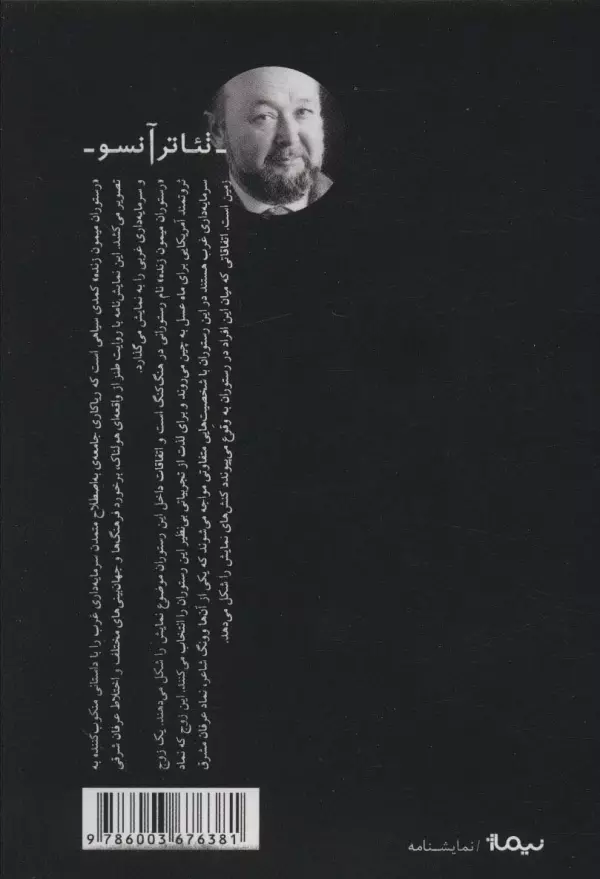 ـ تئاتر آنسو ـ
«رستوران میمون زنده» کمدی سیاهی است که ریاکاری جامعه‌ی به‌اصطلاح متمدن سرمایه‌داری غرب را با داستانی منکوب‌کننده به
تصویر می‌کشد. این نمایش‌نامه با روایت طنز از واقعه‌ای هولناک، برخورد فرهنگ‌ها و جهان‌بینی‌های مختلف و اختلاط عرفان شرقی
و سرمایه‌داری غربی را به نمایش می‌گذارد.
«رستوران میمون زنده» نام رستورانی در هنگ‌کنگ است و اتفاقات داخل این رستوران موضوع نمایش را شکل می‌دهند. یک زوج
ثروتمند آمریکایی برای ماه عسل به چین می‌روند و برای لذت از تجربیاتی بی‌نظیر این رستوران را انتخاب می‌کنند. این زوج که نماد
سرمایه‌داری غرب هستند در این رستوران با شخصیت‌هایی متفاوتی مواجه می‌شوند که یکی از آن‌ها وونگ شاعر، نماد عرفان مشرق
زمین است. اتفاقاتی که میان این افراد در رستوران به وقوع می‌پیوندد کنش‌های نمایش را شکل می‌دهد.
9 786003 676381
نیماژ / نمایشنامه